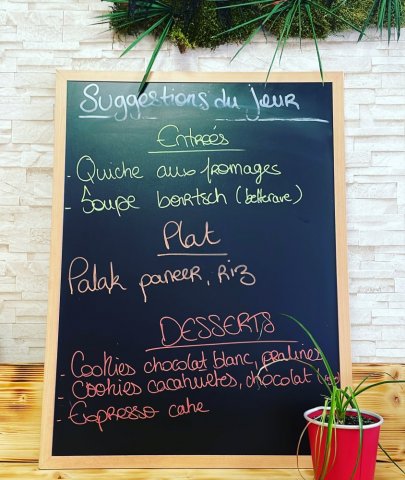 Suggestions du jour
Entrées
- Quiche aux fromages
- Soupe bortsch (betterave)
Plat
Palak paneer, Riz
DESSERTS
- Cookies chocolat blanc, pralines
- Cookies cacahuetes, chocolat
- Espresso cake